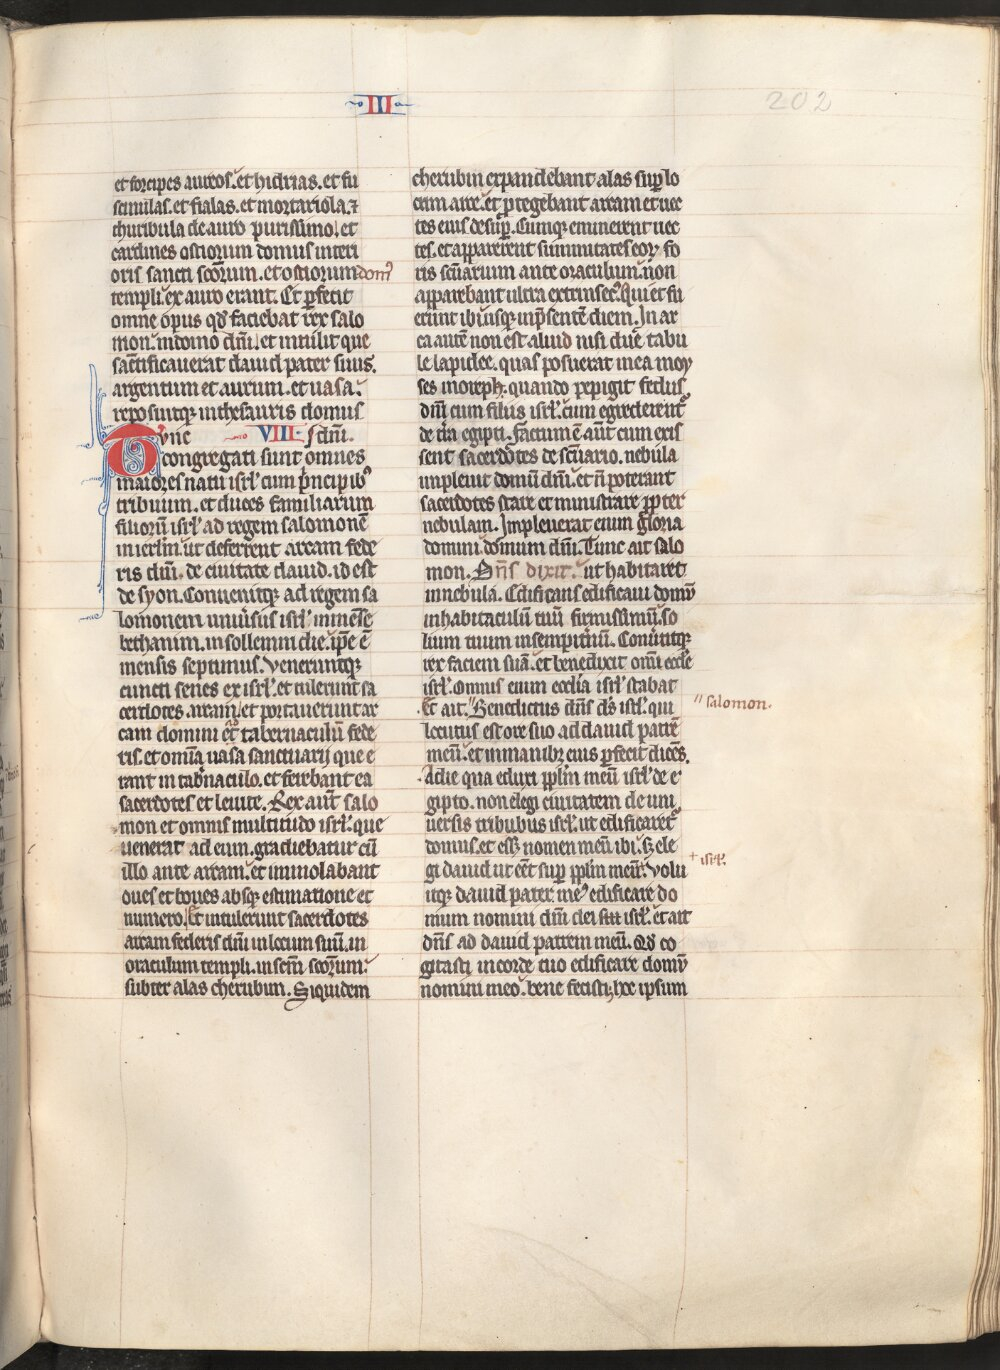 III
202
et forcipes aureos. et hidrias. et fu
scinulas. et fialas. et mortariola. ⁊
thuribula de auro purissimo. et
cardines ostiorum domus interi
oris sancti sc̄orum. et ostiorum domꝰ
templi. ex auro erant. Et ꝑfecit
omne opus qd̄ faciebat rex salo
mon in domo dn̄i. et intulit que
sanctificauerat dauid pater suus.
argentum et aurum. et uasa.
reposuitqꝫ in thesauris domus
Tunc VIII dn̄i.
congregati sunt omnes
maiores natu isrl̓ cum pͥncipibꝰ
tribuum. et duces familiarum
filiorū isrl̓ ad regem salomonē
in ierl̓m ut deferrent arcam fede
ris dn̄i. de ciuitate dauid. id est
de syon. Conuenitqꝫ ad regem sa
lomonem uniu̓sus isrl̓ in mense
bethanim. in sollemni die. ip̄e ē
mensis septimus. Veneruntqꝫ
cuncti senes ex isrl̓. et tulerunt sa
cerdotes arcam. et portauerunt ar
cam domini et tabernaculū fede
ris. et omnia uasa sanctuarij que e
rant in tab̓naculo. et ferebant ea
sacerdotes et leuite. Rex aut̄ salo
mon et omnis multitudo isrl̓. que
uenerat ad eum. gradiebatur cū
illo ante arcam. et immolabant
oues et boues absqꝫ estimatione et
numero. Et intulerunt sacerdotes
arcam federis dn̄i in locum suū. in
oraculum templi. in sc̄m sc̄orum.
subter alas cherubin. Siquidem
cherubin expandebant alas suꝑ lo
cum arce. et ꝓtegebant arcam et uec
tes eius desuꝑ. Cumqꝫ eminerent uec
tes. et apparerent summitates eoꝝ fo
ris sc̄uarium ante oraculum. non
apparebant ultra extrinsecꝰ. Qui et fu
erunt ibi usqꝫ in p̄sentē diem. In ar
ca autē non est aliud nisi due tabu
le lapidee. quas posuerat in ea moy
ses in oreph. quando pepigit fedus
dn̄i cum filiis isrl̓. cum egrederent᷑
de t̓ra egipti. Factum ē aūt cum exis
sent sacerdotes de sc̄uario. nebula
impleuit domū dn̄i. et n̄ poterant
sacerdotes stare et ministrare ꝓpter
nebulam. Impleuerat enim gloria
domini domum dn̄i. Tunc ait salo
mon. Dn̄s dixit. ut habitaret
in nebula. Edificans edificaui domū
in habitaculū tuū firmissimū. so
lium tuum in sempit̓nū. Conu̓titqꝫ
rex faciem suā. et benedixit om̄i eccl̓e
isrl̓. Omnis enim eccl̓ia isrl̓ stabat
Et ait. // Benedictus dn̄s ds̄ isrl̓. qui
// salomon.
locutus est ore suo ad dauid patrē
meū. et in manibꝫ eius ꝑfecit dicēs.
A die qua eduxi ppl̓m meū isrl̓ de e
gipto. non elegi ciuitatem de uni
uersis tribubus isrl̓. ut edificaret᷑
domus. et esset nomen meū ibi. sꝫ ele
gi dauid ut eēt suꝑ ppl̓m meū. Volu
+ isrl̓.
itqꝫ dauid pater meꝰ edificare do
mum nomini dn̄i dei isrl̓. et ait
dn̄s ad dauid patrem meū. Qd̄ co
gitasti in corde tuo edificare domū
nomini meo. bene fecisti. hoc ipsum